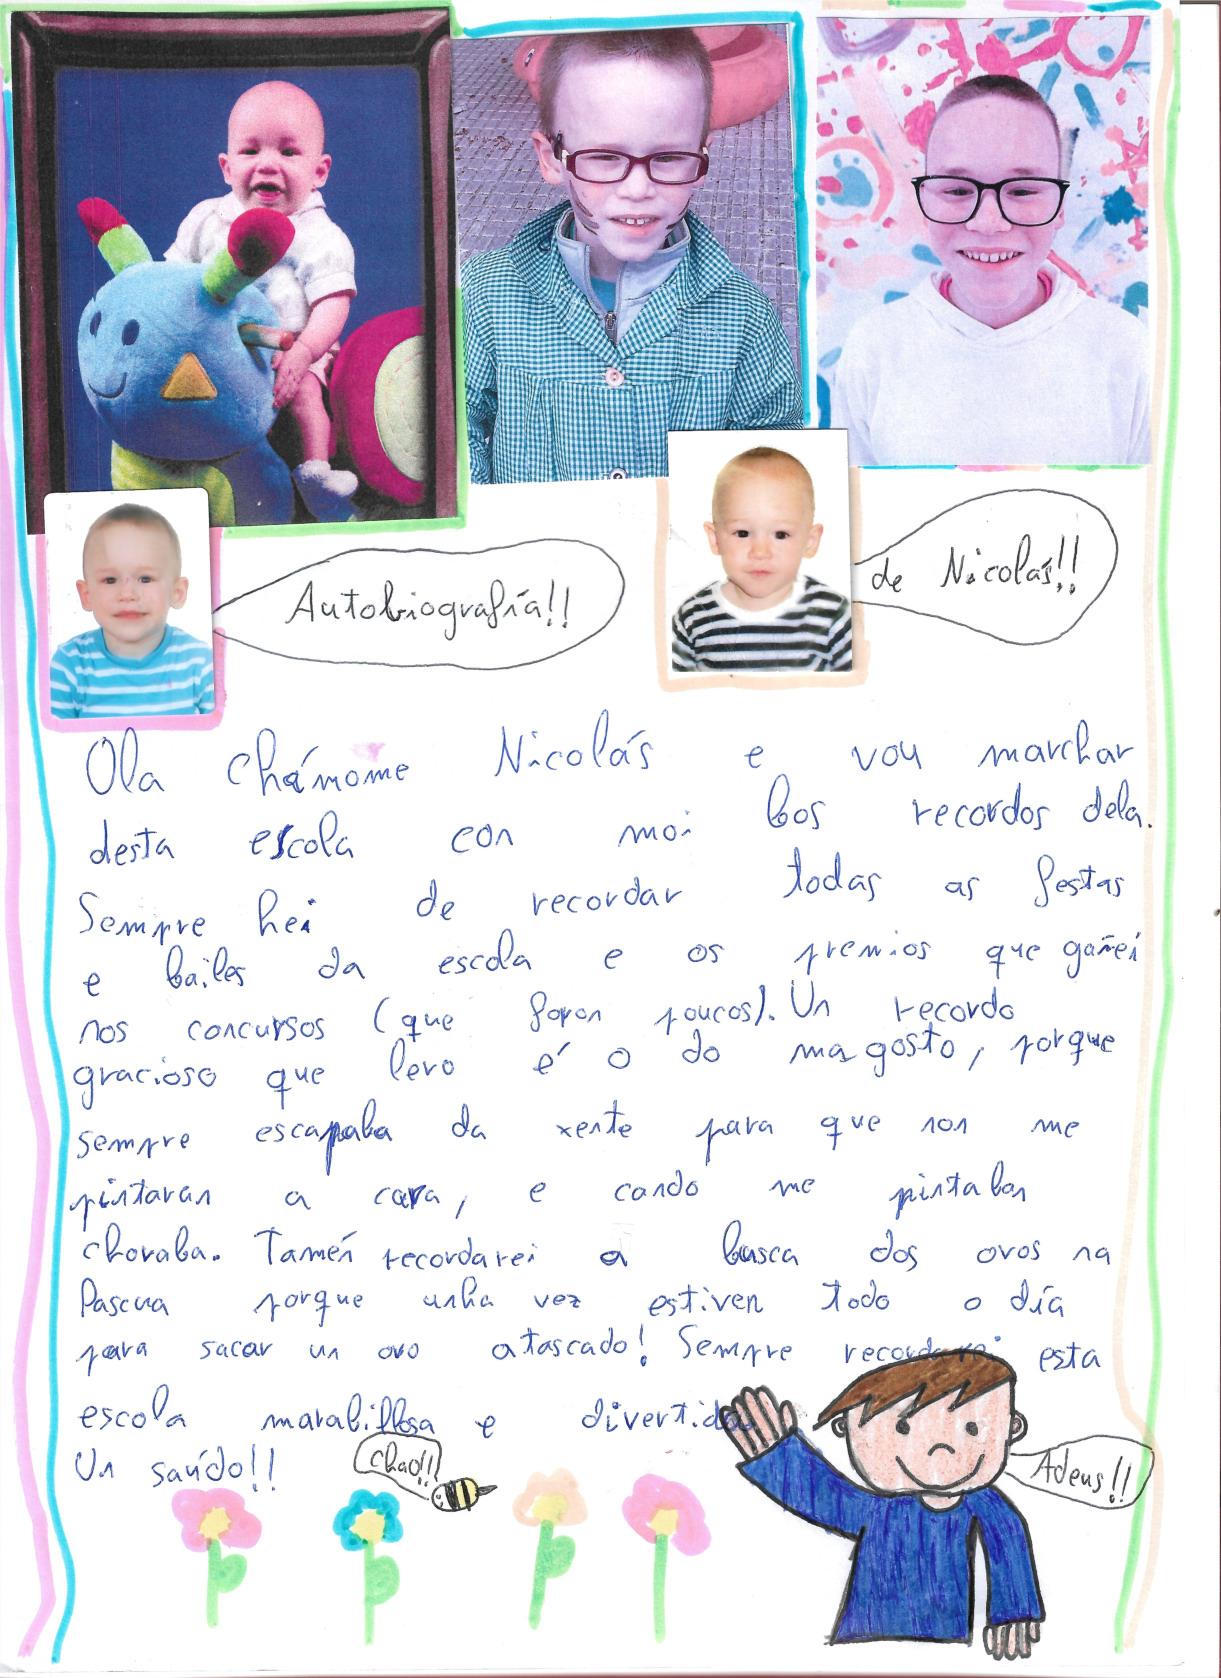 Autobiografía!!
de Nicolás!!
Ola chámome Nicolás e vou marchar
desta escola con moi bos recordos dela.
Sempre hei de recordar todas as festas
e bailes da escola e os premios que gañei
nos concursos (que foron poucos). Un recordo
gracioso que levo é o do magosto, porque
sempre escapaba da xente para que non me
pintaran a cara, e cando me pintaban
choraba. Tamén recordarei a busca dos ovos na
Pascua porque unha vez estiven todo o día
para sacar un ovo atascado! Sempre recordarei esta
escola marabillosa e divertida
Un saúdo!!
Chao!!
Adeus!!